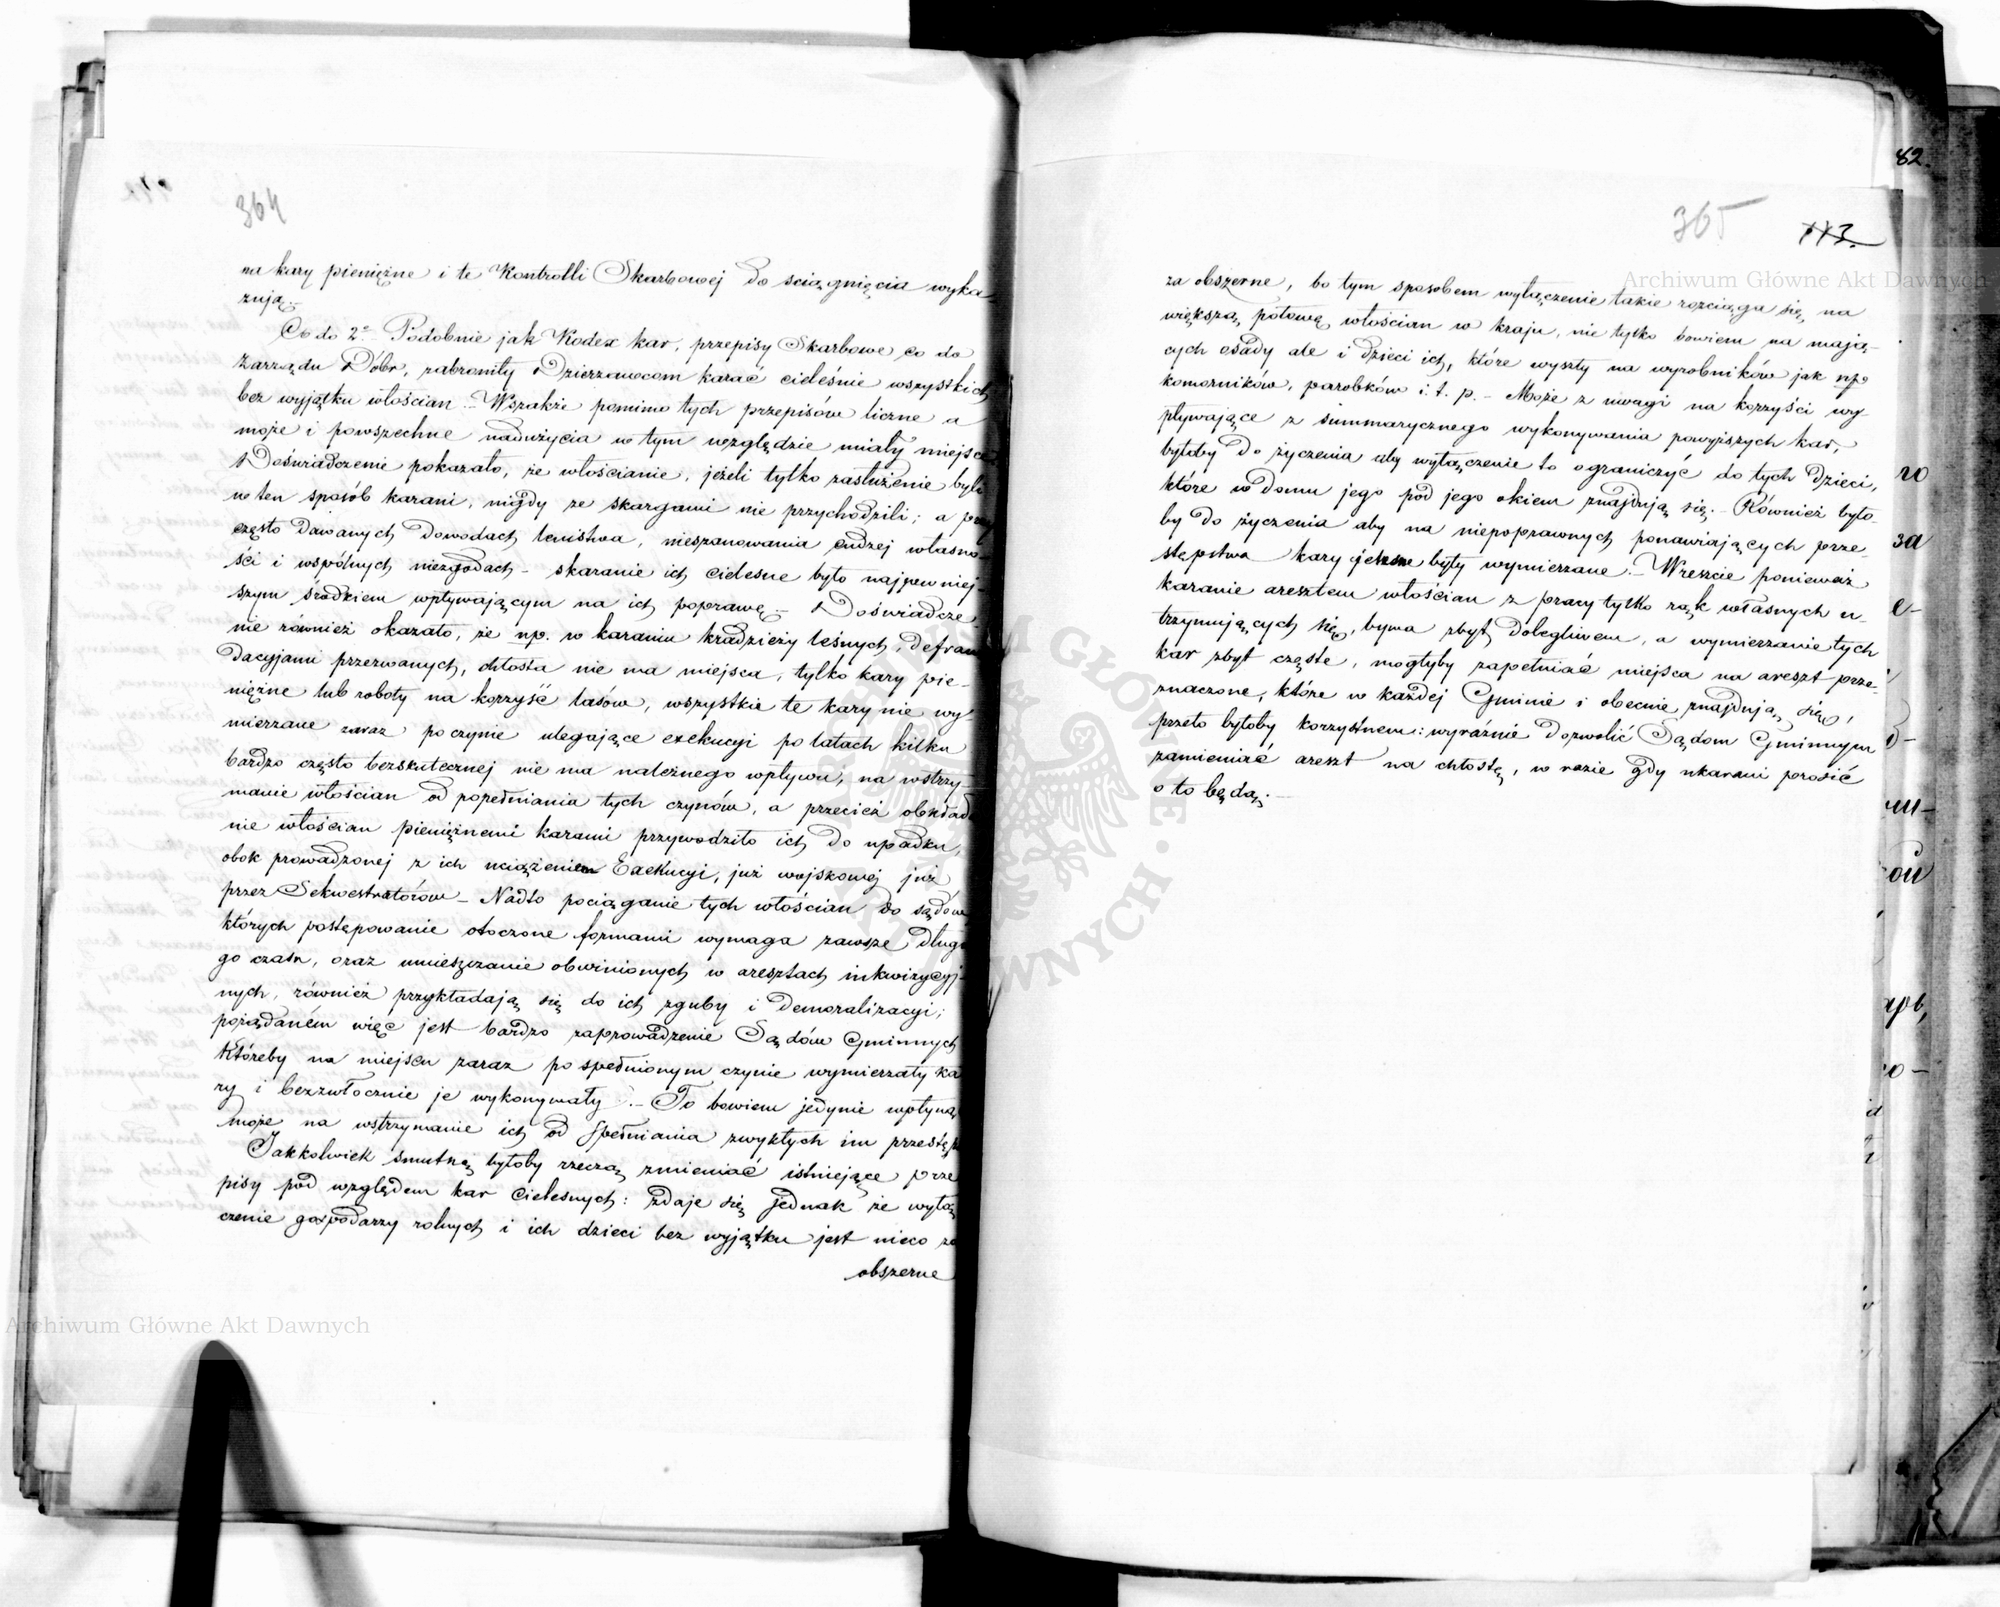 364
na kary pieniężne i te Kontrolli Skarbowej do sciągnięcia wyka-
zują.-
Co do 2º Podobnie jak Kodex kar, przepisy Skarbowe co do
Zarządu Dóbr, zabroniły Dzierzawcom karać cieleśnie wszystkich
bez wyjątku włościan.- Wszakże pomimo tych przepisów liczne a
może i powszechne nadużycia w tym względzie miały miejsce
Doświadczenie pokazało, że włościanie, jeżeli tylko zasłużenie byli
w ten sposób karani, nigdy ze skargami nie przychodzili; a przy
często dawanych dowodach lenistwa, nieszanowania cudzej własno-
ści i wspólnych niezgodach - skaranie ich cielesne było najpewniej-
szym środkiem wpływającym na ich poprawę.- Doświadcze
nie również okazało, że np. w karaniu kradzieży leśnych, defrau
dacyjami przezwanych, chłosta nie ma miejsca, tylko kary pie-
niężne lub roboty na korzyść lasów, wszystkie te kary nie wy-
mierzane zaraz po czynie ulegające exekucyi po latach kilku
bardzo często bezskutecznej nie ma należnego wpływu, na wstrzy
manie włościan od popełniania tych czynów, a przecież obkłada
nie włościan pieniężnemi karami przywodziło ich do upadku,
obok prowadzonej z ich uciążeniem Exekucyi, już wojskowej już
przez Sekwestratorów - Nadto pociąganie tych włościan do sądów
których postępowanie otoczone formami wymaga zawsze długi
go czasu, oraz umieszczanie obwinionych w aresztach inkwizycyj-
nych, również przykładają się do ich zguby i demoralizacyi;
pożądaném więc jest bardzo zaprowadzenie Sądów Gminnych
któreby na miejscu zaraz po spełnionym czynie wymierzały ka
ry i bezzwłocznie je wykonywały.- To bowiem jedynie wpłyną
może na wstrzymanie ich od spełniania zwykłych im przestęp
Jakkolwiek smutną byłoby rzeczą zmieniać istniejące prze
pisy pod względem kar cielesnych: zdaje się jednak że wyłą
czenie gospodarzy rolnych i ich dzieci bez wyjątku jest nieco za
obszerne
82.
365
113.
za obszerne, bo tym sposobem wyłączenie takie rozciąga się na
większą połowę włościan w kraju, nie tylko bowiem na mają-
cych osady ale i dzieci ich, które wyszły na wyrobników jak np
komorników, parobków i. t. p. - Może z uwagi na korzyści wy
pływające z summarycznego wykonywania powyższych kar,
byłoby do życzenia aby wyłączenie to ograniczyć do tych dzieci,
które w domu jego pod jego okiem znajdują się.- Również było-
by do życzenia aby na niepoprawnych ponawiających prze
stępstwa kary cielesne były wymierzane.- Wreszcie ponieważ
karanie aresztem włościan z pracy tylko rąk własnych u-
trzymujących się, bywa zbyt dolegliwem, a wymierzanie tych
kar zbyt częste, mogłyby zapełniać miejsca na areszt prze-
znaczone, które w każdej Gminie i obecnie znajdują się,
przeto byłoby korzystnem: wyraźnie dozwolić Sądom Gminnym
zamieniać areszt na chłostę, w razie gdy ukarani prosić
o to będą.-
Archiwum Główne Akt Dawnych
Archiwum Główne Akt Dawnych